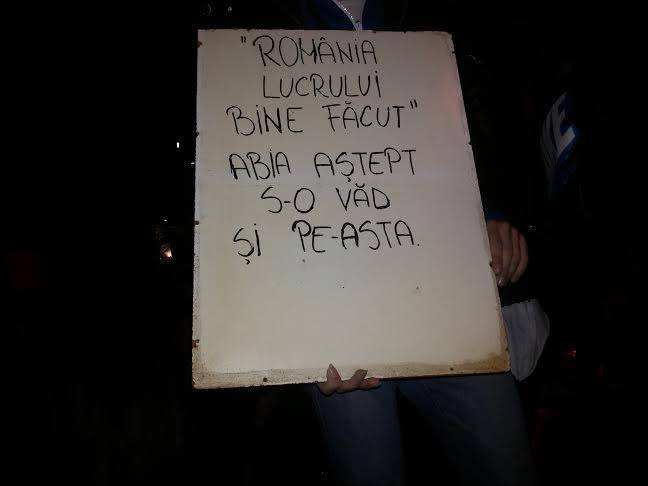 "ROMÂNIA
LUCRULUI
BINE FĂCUT"
ABIA AȘTEPT
S-O VĂD
ȘI PE-ASTA.